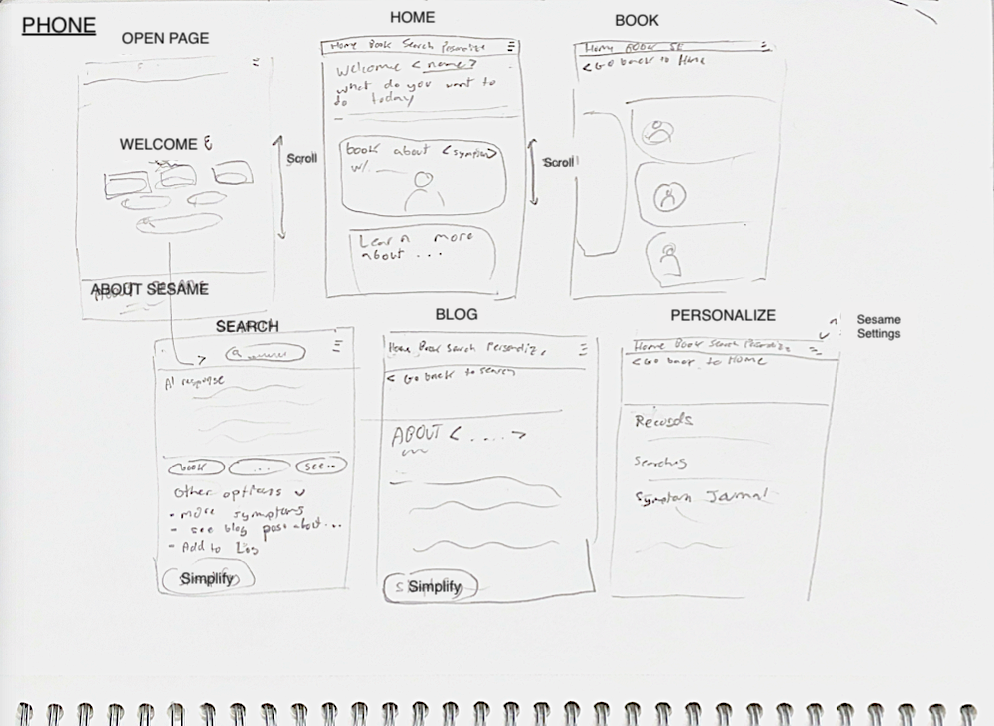 PHONE
OPEN PAGE
WELCOME
ABOUT SESAME
Scroll
HOME
Home Book Search Personalize
Welcome <name>
what do you want to
do today
book about <symptom>
w/.
Learn more
about ...
Scroll
BOOK
Home BOOK SE
< Go back to Home
SEARCH
AI response
book
...
see..
Other options
• more symptoms
- see blog post about...
- Add to Log
Simplify
BLOG
Home Book Search Personalize
< Go back to search
ABOUT <....>
Simplify
PERSONALIZE
Sesame
Settings
Home Book Search Personalize
< Go back to Home
Records
Searches
Symptom Journal